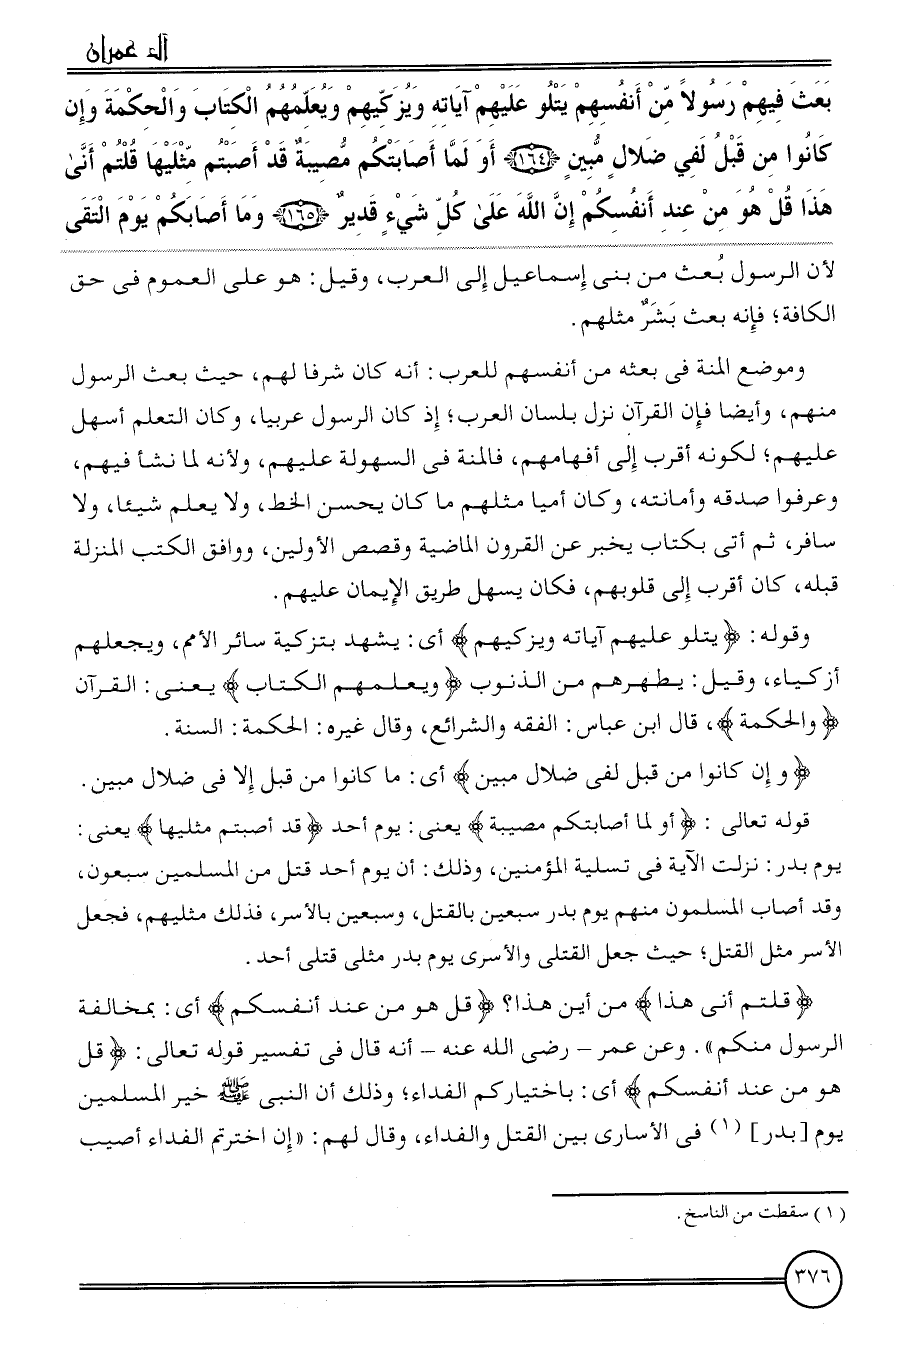 آل عمران
بَعَثَ فِيهِمْ رَسُولاً مِّنْ أَنفُسِهِمْ يَتْلُو عَلَيْهِمْ آيَاتِهِ وَيُزَكِّيهِمْ وَيُعَلِّمُهُمُ الْكِتَابَ وَالْحِكْمَةَ وَإِن
كَانُوا مِن قَبْلُ لَفِي ضَلَالٍ مُّبِينٍ ﴿١٦٤﴾ أَوَ لَمَّا أَصَابَتْكُم مُّصِيبَةٌ قَدْ أَصَبْتُم مِّثْلَيْهَا قُلْتُمْ أَنَّىٰ
هَذَا قُلْ هُوَ مِنْ عِندِ أَنفُسِكُمْ إِنَّ اللَّهَ عَلَىٰ كُلِّ شَيْءٍ قَدِيرٌ ﴿١٦٥﴾ وَمَا أَصَابَكُمْ يَوْمَ الْتَقَى
لأن الرسول بُعث من بنى إسماعيل إلى العرب، وقيل: هو على العموم فى حق
الكافة؛ فإنه بعث بَشَرٌ مثلهم.
وموضع المنة فى بعثه من أنفسهم للعرب: أنه كان شرفا لهم، حيث بعث الرسول
منهم، وأيضا فإن القرآن نزل بلسان العرب؛ إذ كان الرسول عربيا، وكان التعلم أسهل
عليهم؛ لكونه أقرب إلى أفهامهم، فالمنة فى السهولة عليهم، ولأنه لما نشأ فيهم،
وعرفوا صدقه وأمانته، وكان أميا مثلهم ما كان يحسن الخط، ولا يعلم شيئا، ولا
سافر، ثم أتى بكتاب يخبر عن القرون الماضية وقصص الأولين، ووافق الكتب المنزلة
قبله، كان أقرب إلى قلوبهم، فكان يسهل طريق الإيمان عليهم.
وقوله: ﴿يتلو عليهم آياته ويزكيهم﴾ أى: يشهد بتزكية سائر الأمم، ويجعلهم
أزكياء، وقيل: يطهرهم من الذنوب ﴿ويعلمهم الكتاب﴾ يعنى: القرآن
﴿والحكمة﴾، قال ابن عباس: الفقه والشرائع، وقال غيره: الحكمة: السنة.
﴿وإن كانوا من قبل لفى ضلال مبين﴾ أى: ما كانوا من قبل إلا فى ضلال مبين.
قوله تعالى: ﴿أو لما أصابتكم مصيبة﴾ يعنى: يوم أحد ﴿قد أصبتم مثليها﴾ يعنى:
يوم بدر: نزلت الآية فى تسلية المؤمنين، وذلك: أن يوم أحد قتل من المسلمين سبعون،
وقد أصاب المسلمون منهم يوم بدر سبعين بالقتل، وسبعين بالأسر، فذلك مثليهم، فجعل
الأسر مثل القتل؛ حيث جعل القتلى والأسرى يوم بدر مثلى قتلى أحد.
﴿قلتم أنى هذا﴾ من أين هذا؟ ﴿قل هو من عند أنفسكم﴾ أى: بمخالفة
الرسول منكم». وعن عمر – رضى الله عنه – أنه قال فى تفسير قوله تعالى: ﴿قل
هو من عند أنفسكم﴾ أى: باختياركم الفداء؛ وذلك أن النبى ﷺ خير المسلمين
يوم [بدر] (١) فى الأسارى بين القتل والفداء، وقال لهم: «إن اخترتم الفداء أصيب
(١) سقطت من الناسخ.
٣٧٦